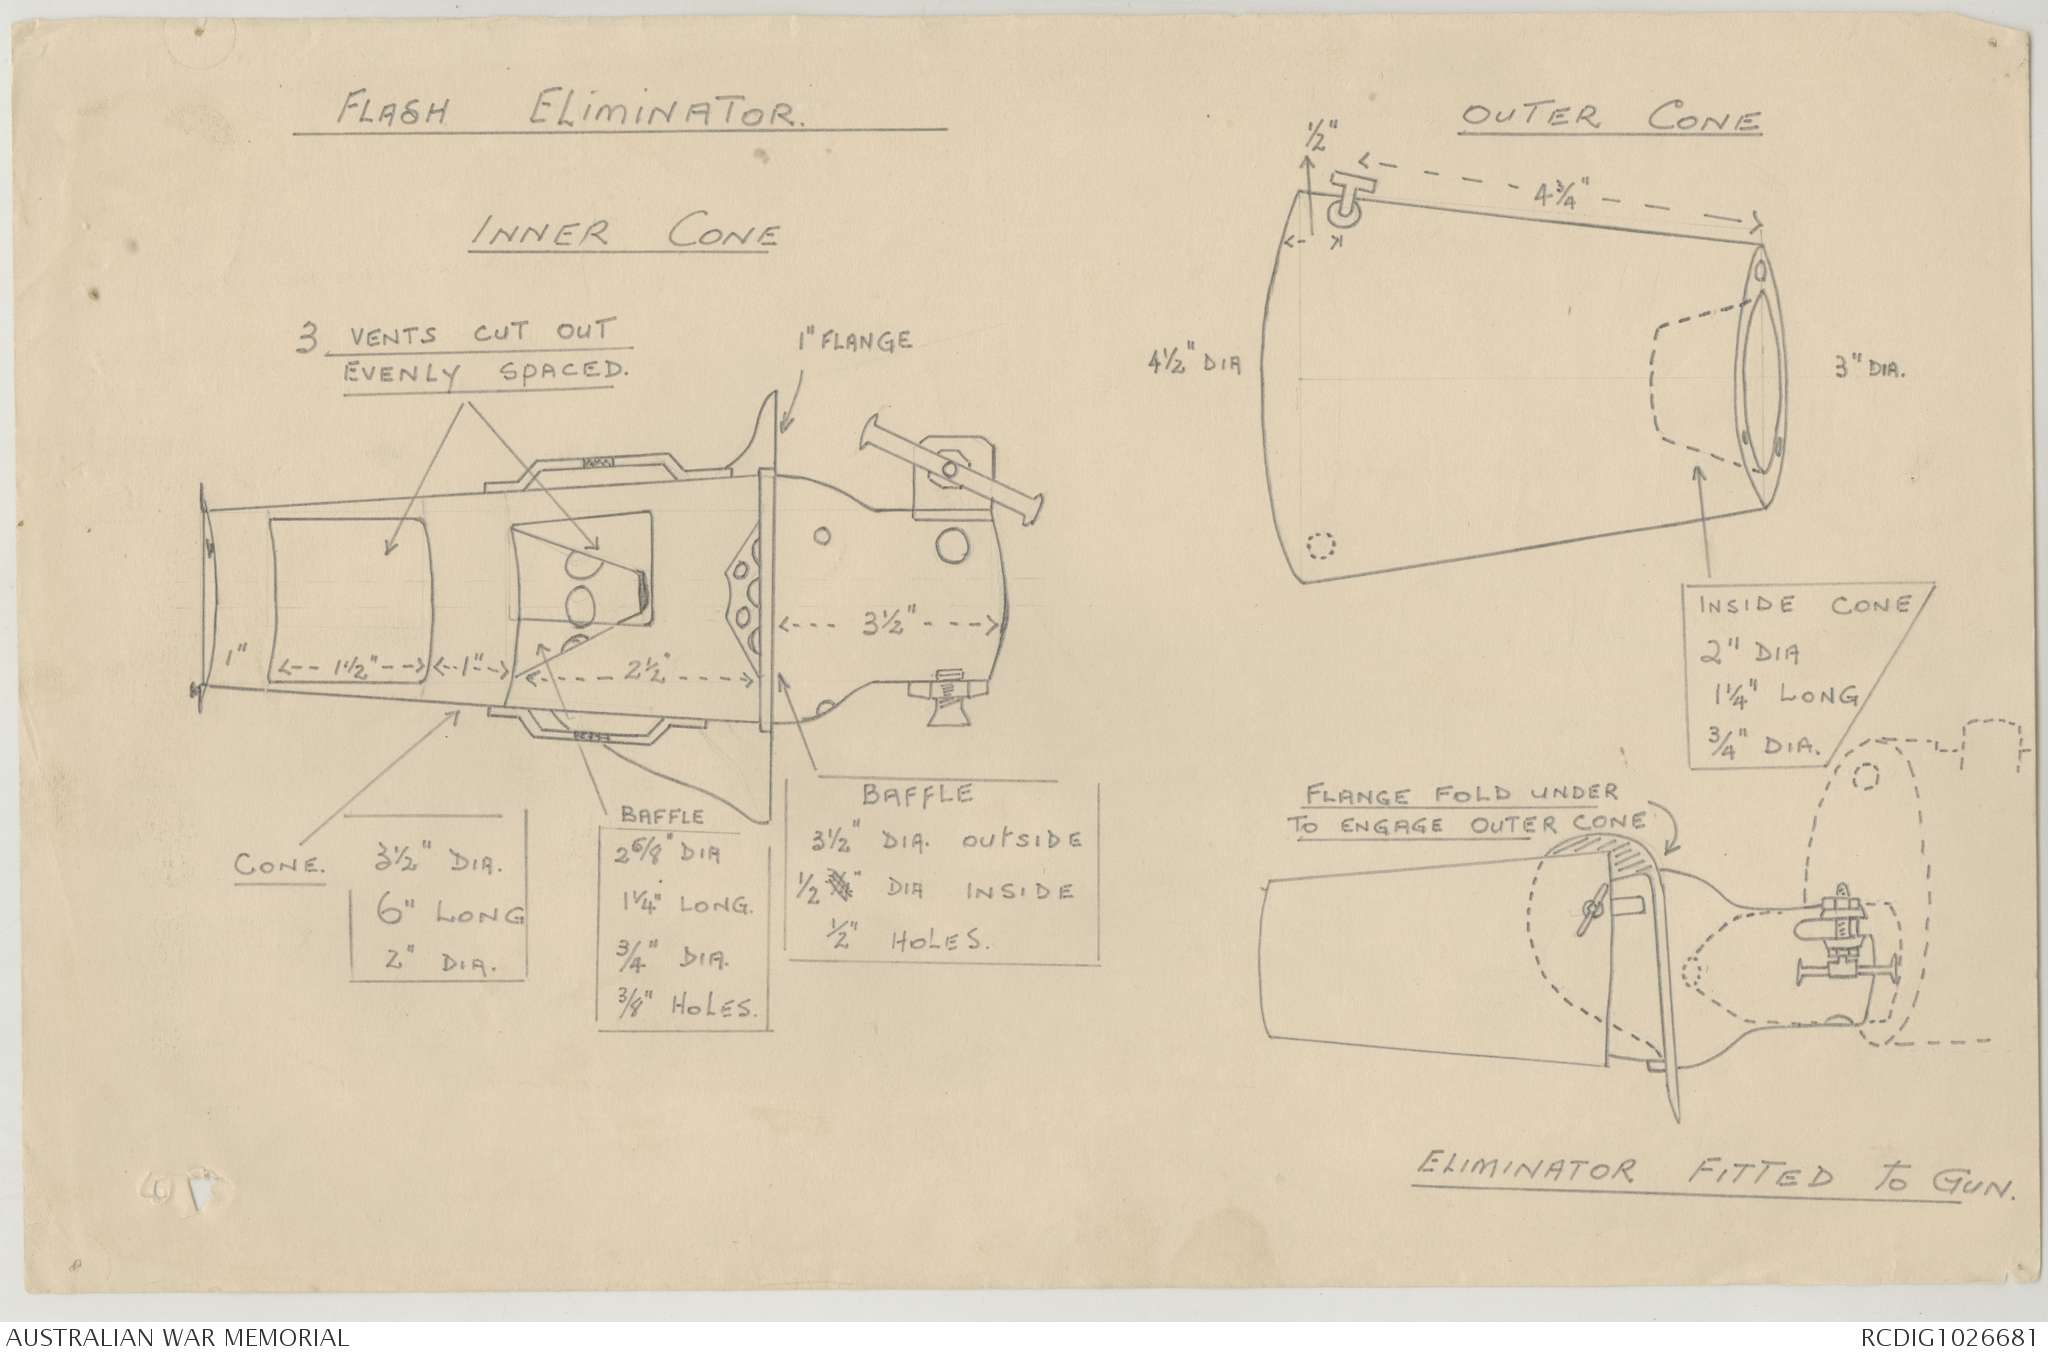 FLASH ELIMINATOR.
INNER CONE
3 VENTS CUT OUT
EVENLY SPACED.
1" FLANGE
1"
1½"
1"
2½"
3½"
CONE.
3½" DIA.
6" LONG
2" DIA.
BAFFLE
2 6/8" DIA
1¼" LONG.
¾" DIA.
3/8" HOLES.
BAFFLE
3½" DIA. OUTSIDE
½" DIA INSIDE
½" HOLES.
OUTER CONE
½"
4¾"
4½" DIA
3" DIA.
INSIDE CONE
2" DIA
1¼" LONG
¾" DIA.
FLANGE FOLD UNDER
TO ENGAGE OUTER CONE
ELIMINATOR FITTED TO GUN.
AUSTRALIAN WAR MEMORIAL
RCDIG1026681